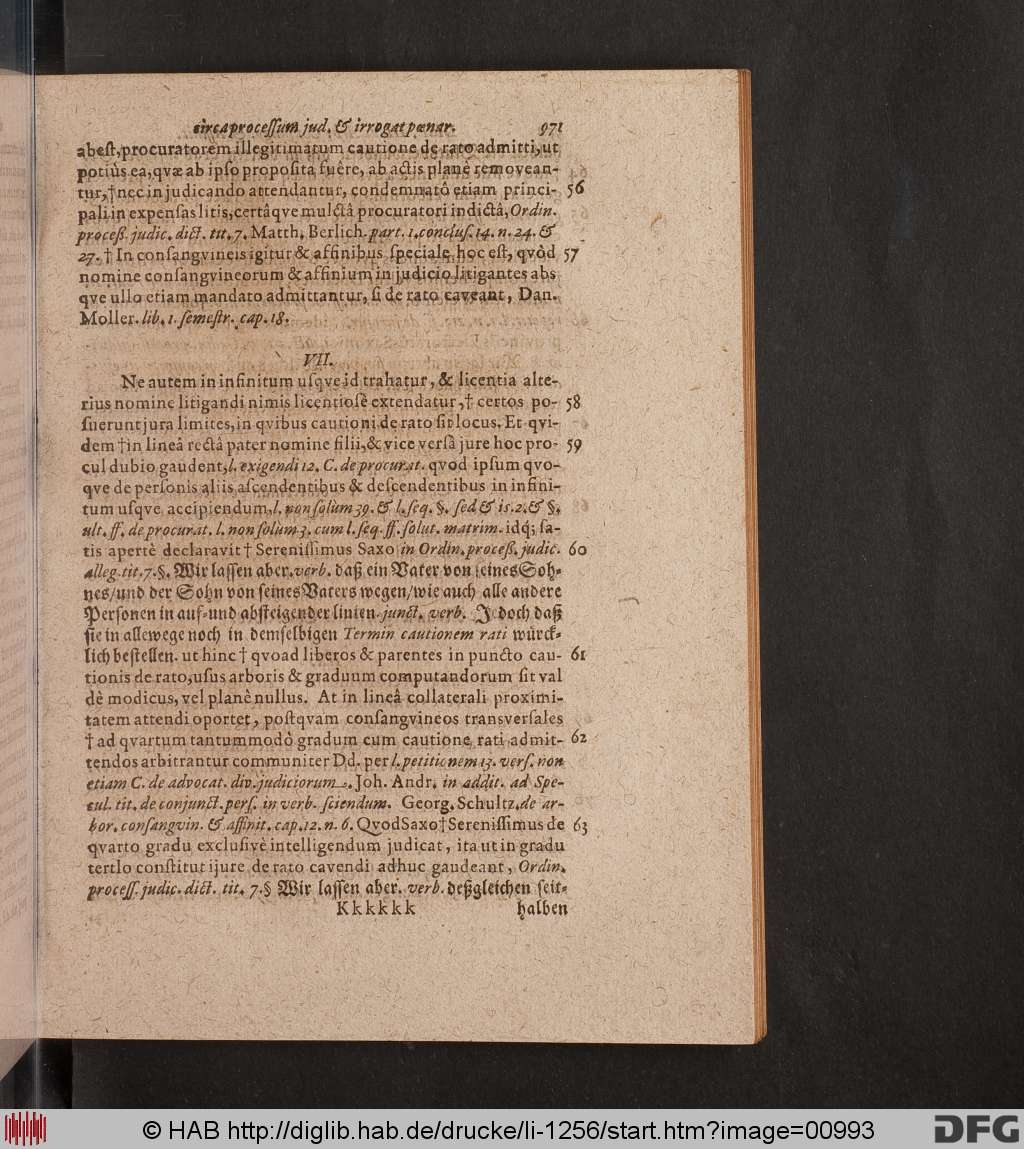 circa processum jud. & irrogat pœnar. 971
abest, procuratorem illegitimatum cautione de rato admitti, ut
potiùs ea, qvæ ab ipso proposita fuêre, ab actis planè removean-
tur, † nec in judicando attendantur, condemnatô etiam princi- 56
pali in expensas litis, certâqve mulctâ procuratori indictâ, Ordin.
proceß. judic. dict. tit. 7. Matth. Berlich. part. 1. conclus. 14. n. 24. &
27. † In consangvineis igitur & affinibus speciale hoc est, qvòd 57
nomine consangvineorum & affinium in judicio litigantes abs
qve ullo etiam mandato admittantur, si de rato caveant, Dan.
Moller. lib. 1. semestr. cap. 18.
VII.
Ne autem in infinitum usqve id trahatur, & licentia alte-
rius nomine litigandi nimis licentiosè extendatur, † certos po- 58
suerunt jura limites, in qvibus cautioni de rato sit locus. Et qvi-
dem † in lineâ rectâ pater nomine filii, & vice versâ jure hoc pro- 59
cul dubio gaudent, l. exigendi 12. C. de procurat. qvod ipsum qvo-
qve de personis aliis ascendentibus & descendentibus in infini-
tum usqve accipiendum, l. non solum 39. & l. seq. §. sed & is. 2. & §.
ult. ff. de procurat. l. non solum 3. cum l. seq. ff. solut. matrim. idq; sa-
tis apertè declaravit † Serenissimus Saxo in Ordin. proceß. judic. 60
alleg. tit. 7. §. Wir lassen aber. verb. daß ein Vater von seines Soh-
nes/und der Sohn von seines Vaters wegen/wie auch alle andere
Personen in auf-und absteigender linien. junct. verb. Jedoch daß
sie in allewege noch in demselbigen Termin cautionem rati würck-
lich bestellen. ut hinc † qvoad liberos & parentes in puncto cau- 61
tionis de rato, usus arboris & graduum computandorum sit val
dè modicus, vel planè nullus. At in lineâ collaterali proximi-
tatem attendi oportet, postqvam consangvineos transversales
† ad qvartum tantummodò gradum cum cautione rati admit- 62
tendos arbitrantur communiter Dd. per l. petitionem 13. vers. non
etiam C. de advocat. div. judiciorum. Joh. Andr. in addit. ad Spe-
cul. tit. de conjunct. pers. in verb. sciendum. Georg. Schultz. de ar-
bor. consangvin. & affinit. cap. 12. n. 6. Qvod Saxo † Serenissimus de 63
qvarto gradu exclusivè intelligendum judicat, ita ut in gradu
tertIo constitut ijure de rato cavendi adhuc gaudeant, Ordin.
process. judic. dict. tit. 7. § Wir lassen aber. verb. deßgleichen seit-
Kkkkkk halben
© HAB http://diglib.hab.de/drucke/li-1256/start.htm?image=00993
DFG